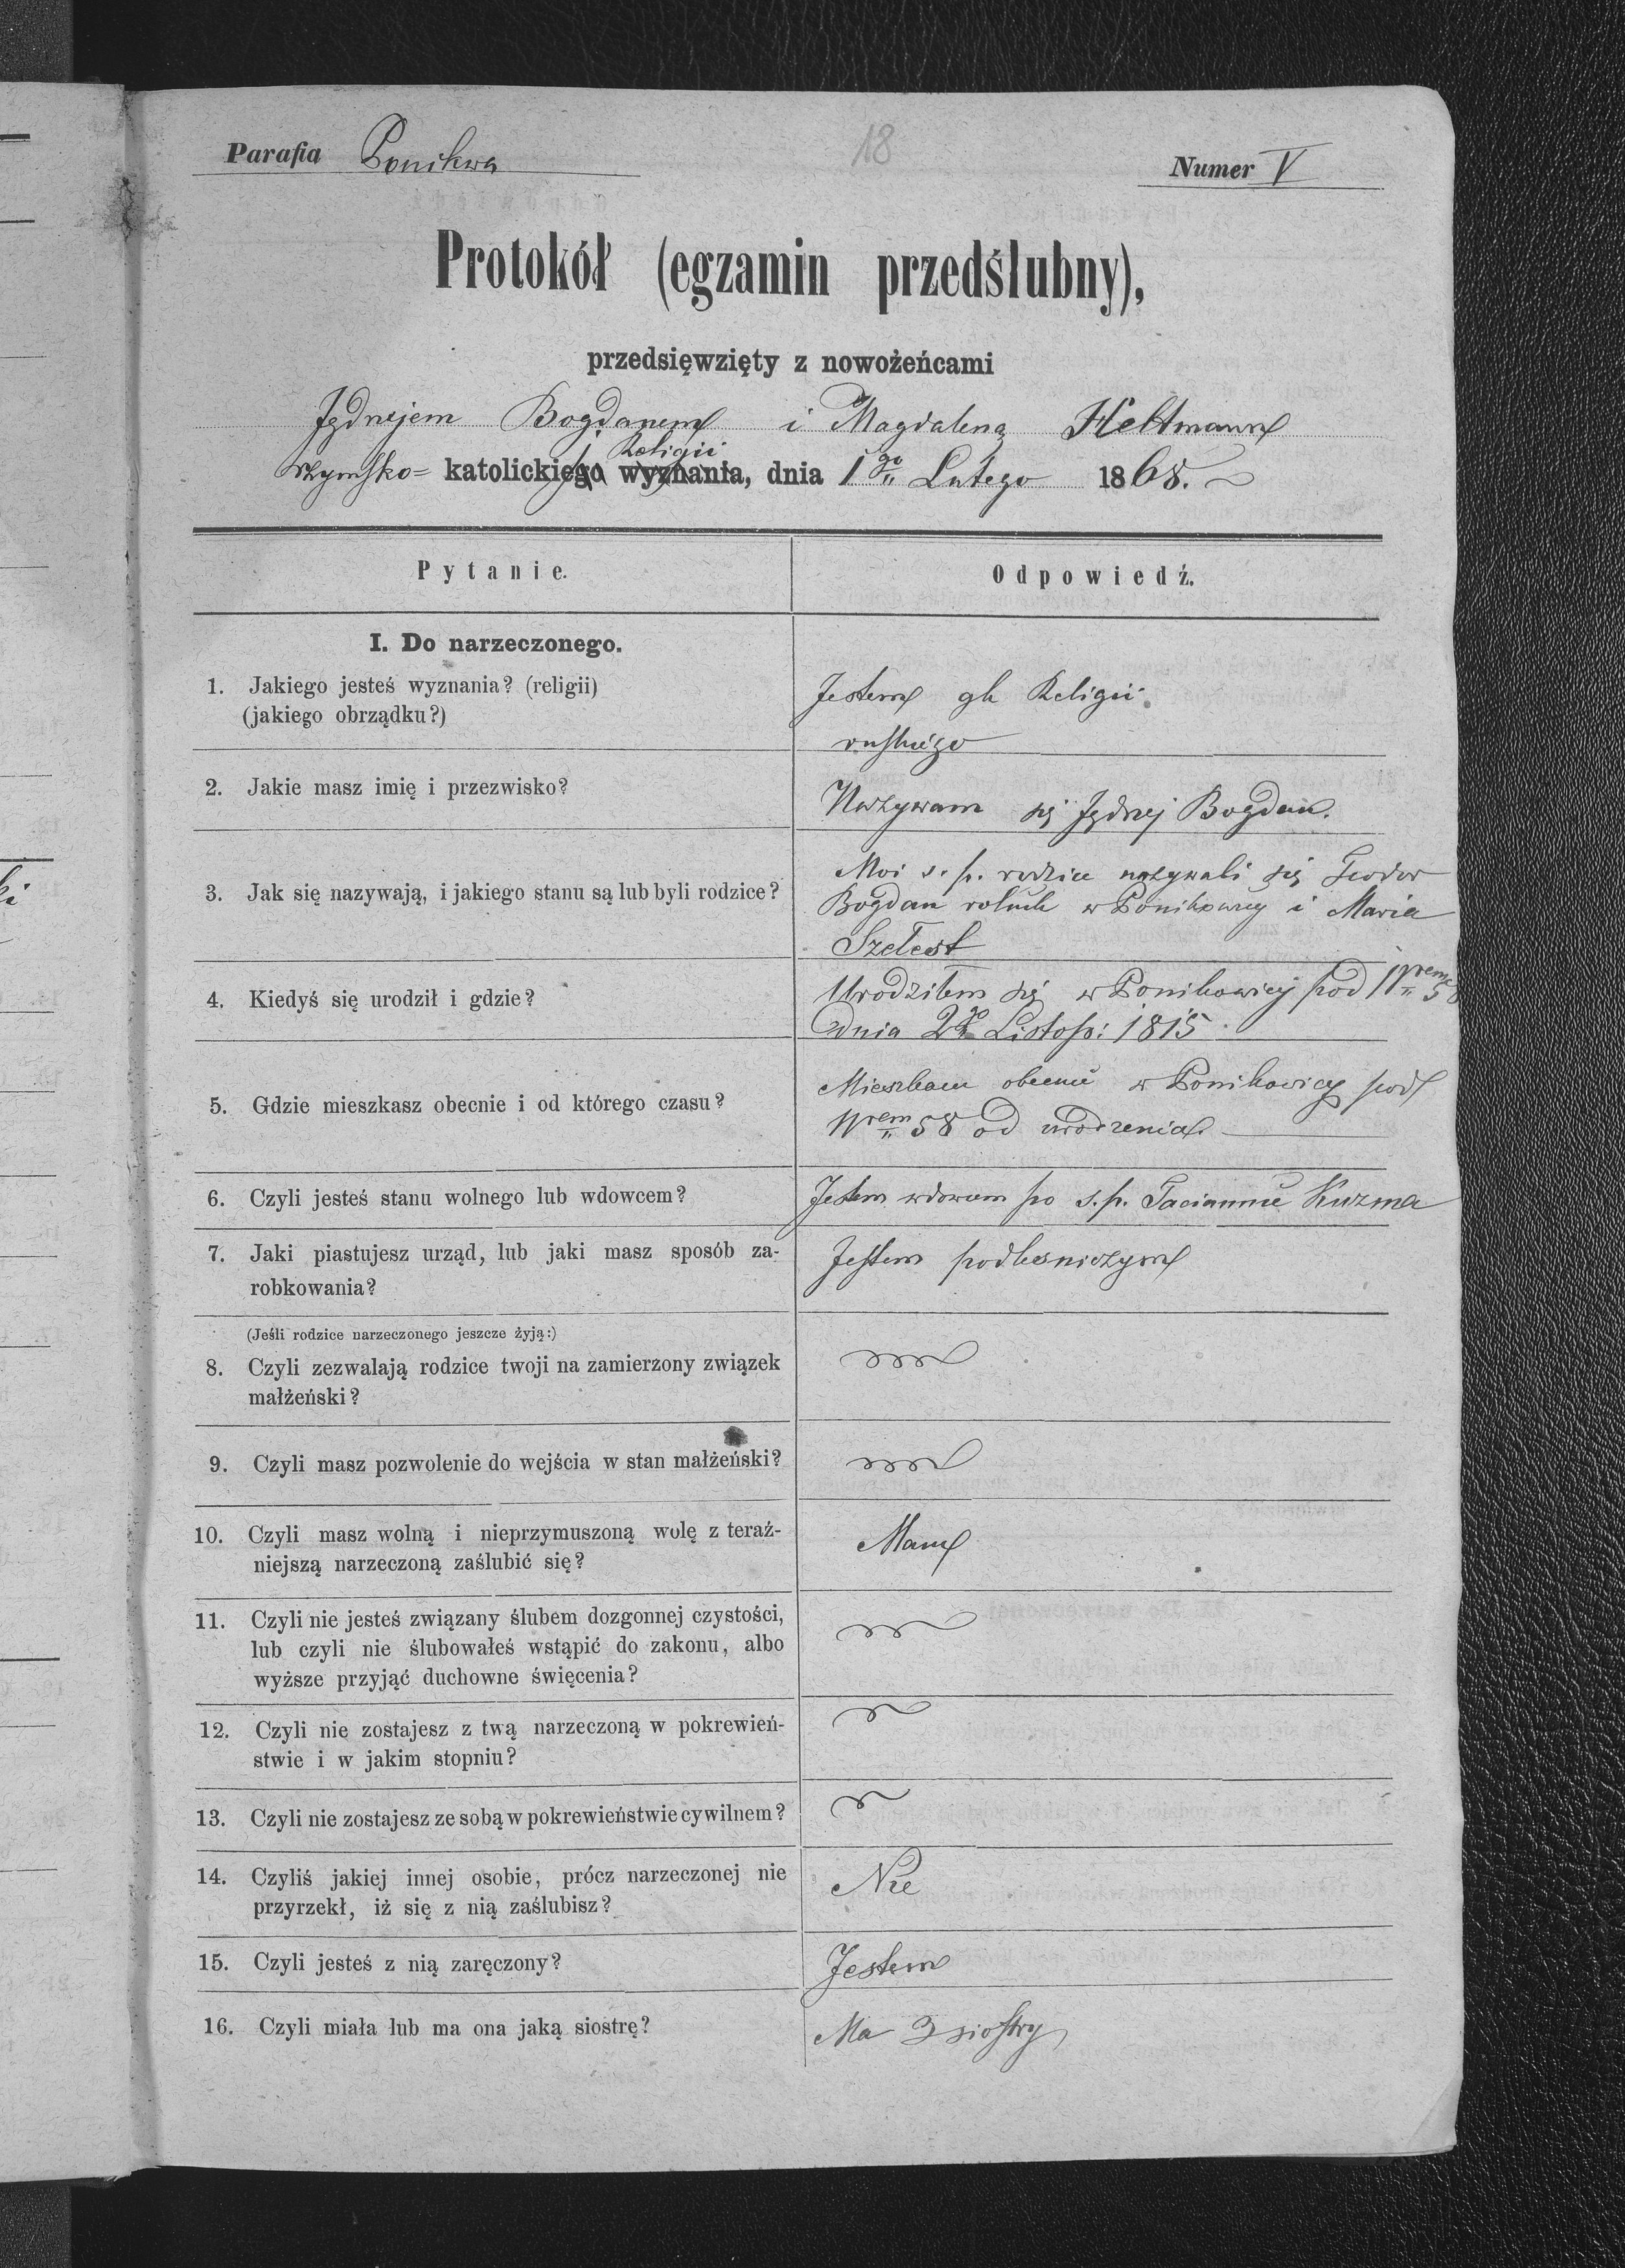 Parafia Ponikwa
18
Numer V
Protokół (egzamin przedślubny),
przedsięwzięty z nowożeńcami
Jędrzejem Bogdanem i Magdaleną Heltmann
Religii
rzymsko= katolickiego wyznania, dnia 1go Lutego 1868.
Pytanie.
Odpowiedź.
I. Do narzeczonego.
1. Jakiego jesteś wyznania? (religii)
(jakiego obrządku?)
Jestem gk Religii
ruskiego
2. Jakie masz imię i przezwisko?
Nazywam się Jędrzej Bogdan.
3. Jak się nazywają, i jakiego stanu są lub byli rodzice?
Moi s. p. rodzice nazywali się Teodor
Bogdan rolnik w Ponikowicy i Maria
Szelest
4. Kiedyś się urodził i gdzie?
Urodziłem się w Ponikowicy pod Nrem 58
dnia 2go Listop: 1815
5. Gdzie mieszkasz obecnie i od którego czasu?
Mieszkam obecnie w Ponikowicy pod
Nrem 58 od urodzenia.
6. Czyli jesteś stanu wolnego lub wdowcem?
Jestem wdowcem po s. p. Taciannie Kuzma
7. Jaki piastujesz urząd, lub jaki masz sposób za-
robkowania?
Jestem podlesniczym
(Jeśli rodzice narzeczonego jeszcze żyją:)
8. Czyli zezwalają rodzice twoji na zamierzony związek
małżeński?
9. Czyli masz pozwolenie do wejścia w stan małżeński?
10. Czyli masz wolną i nieprzymuszoną wolę z teraź-
niejszą narzeczoną zaślubić się?
Mam
11. Czyli nie jesteś związany ślubem dozgonnej czystości,
lub czyli nie ślubowałeś wstąpić do zakonu, albo
wyższe przyjąć duchowne święcenia?
12. Czyli nie zostajesz z twą narzeczoną w pokrewień-
stwie i w jakim stopniu?
13. Czyli nie zostajesz ze sobą w pokrewieństwie cywilnem?
14. Czyliś jakiej innej osobie, prócz narzeczonej nie
przyrzekł, iż się z nią zaślubisz?
Nie
15. Czyli jesteś z nią zaręczony?
Jestem
16. Czyli miała lub ma ona jaką siostrę?
Ma 3 siostry